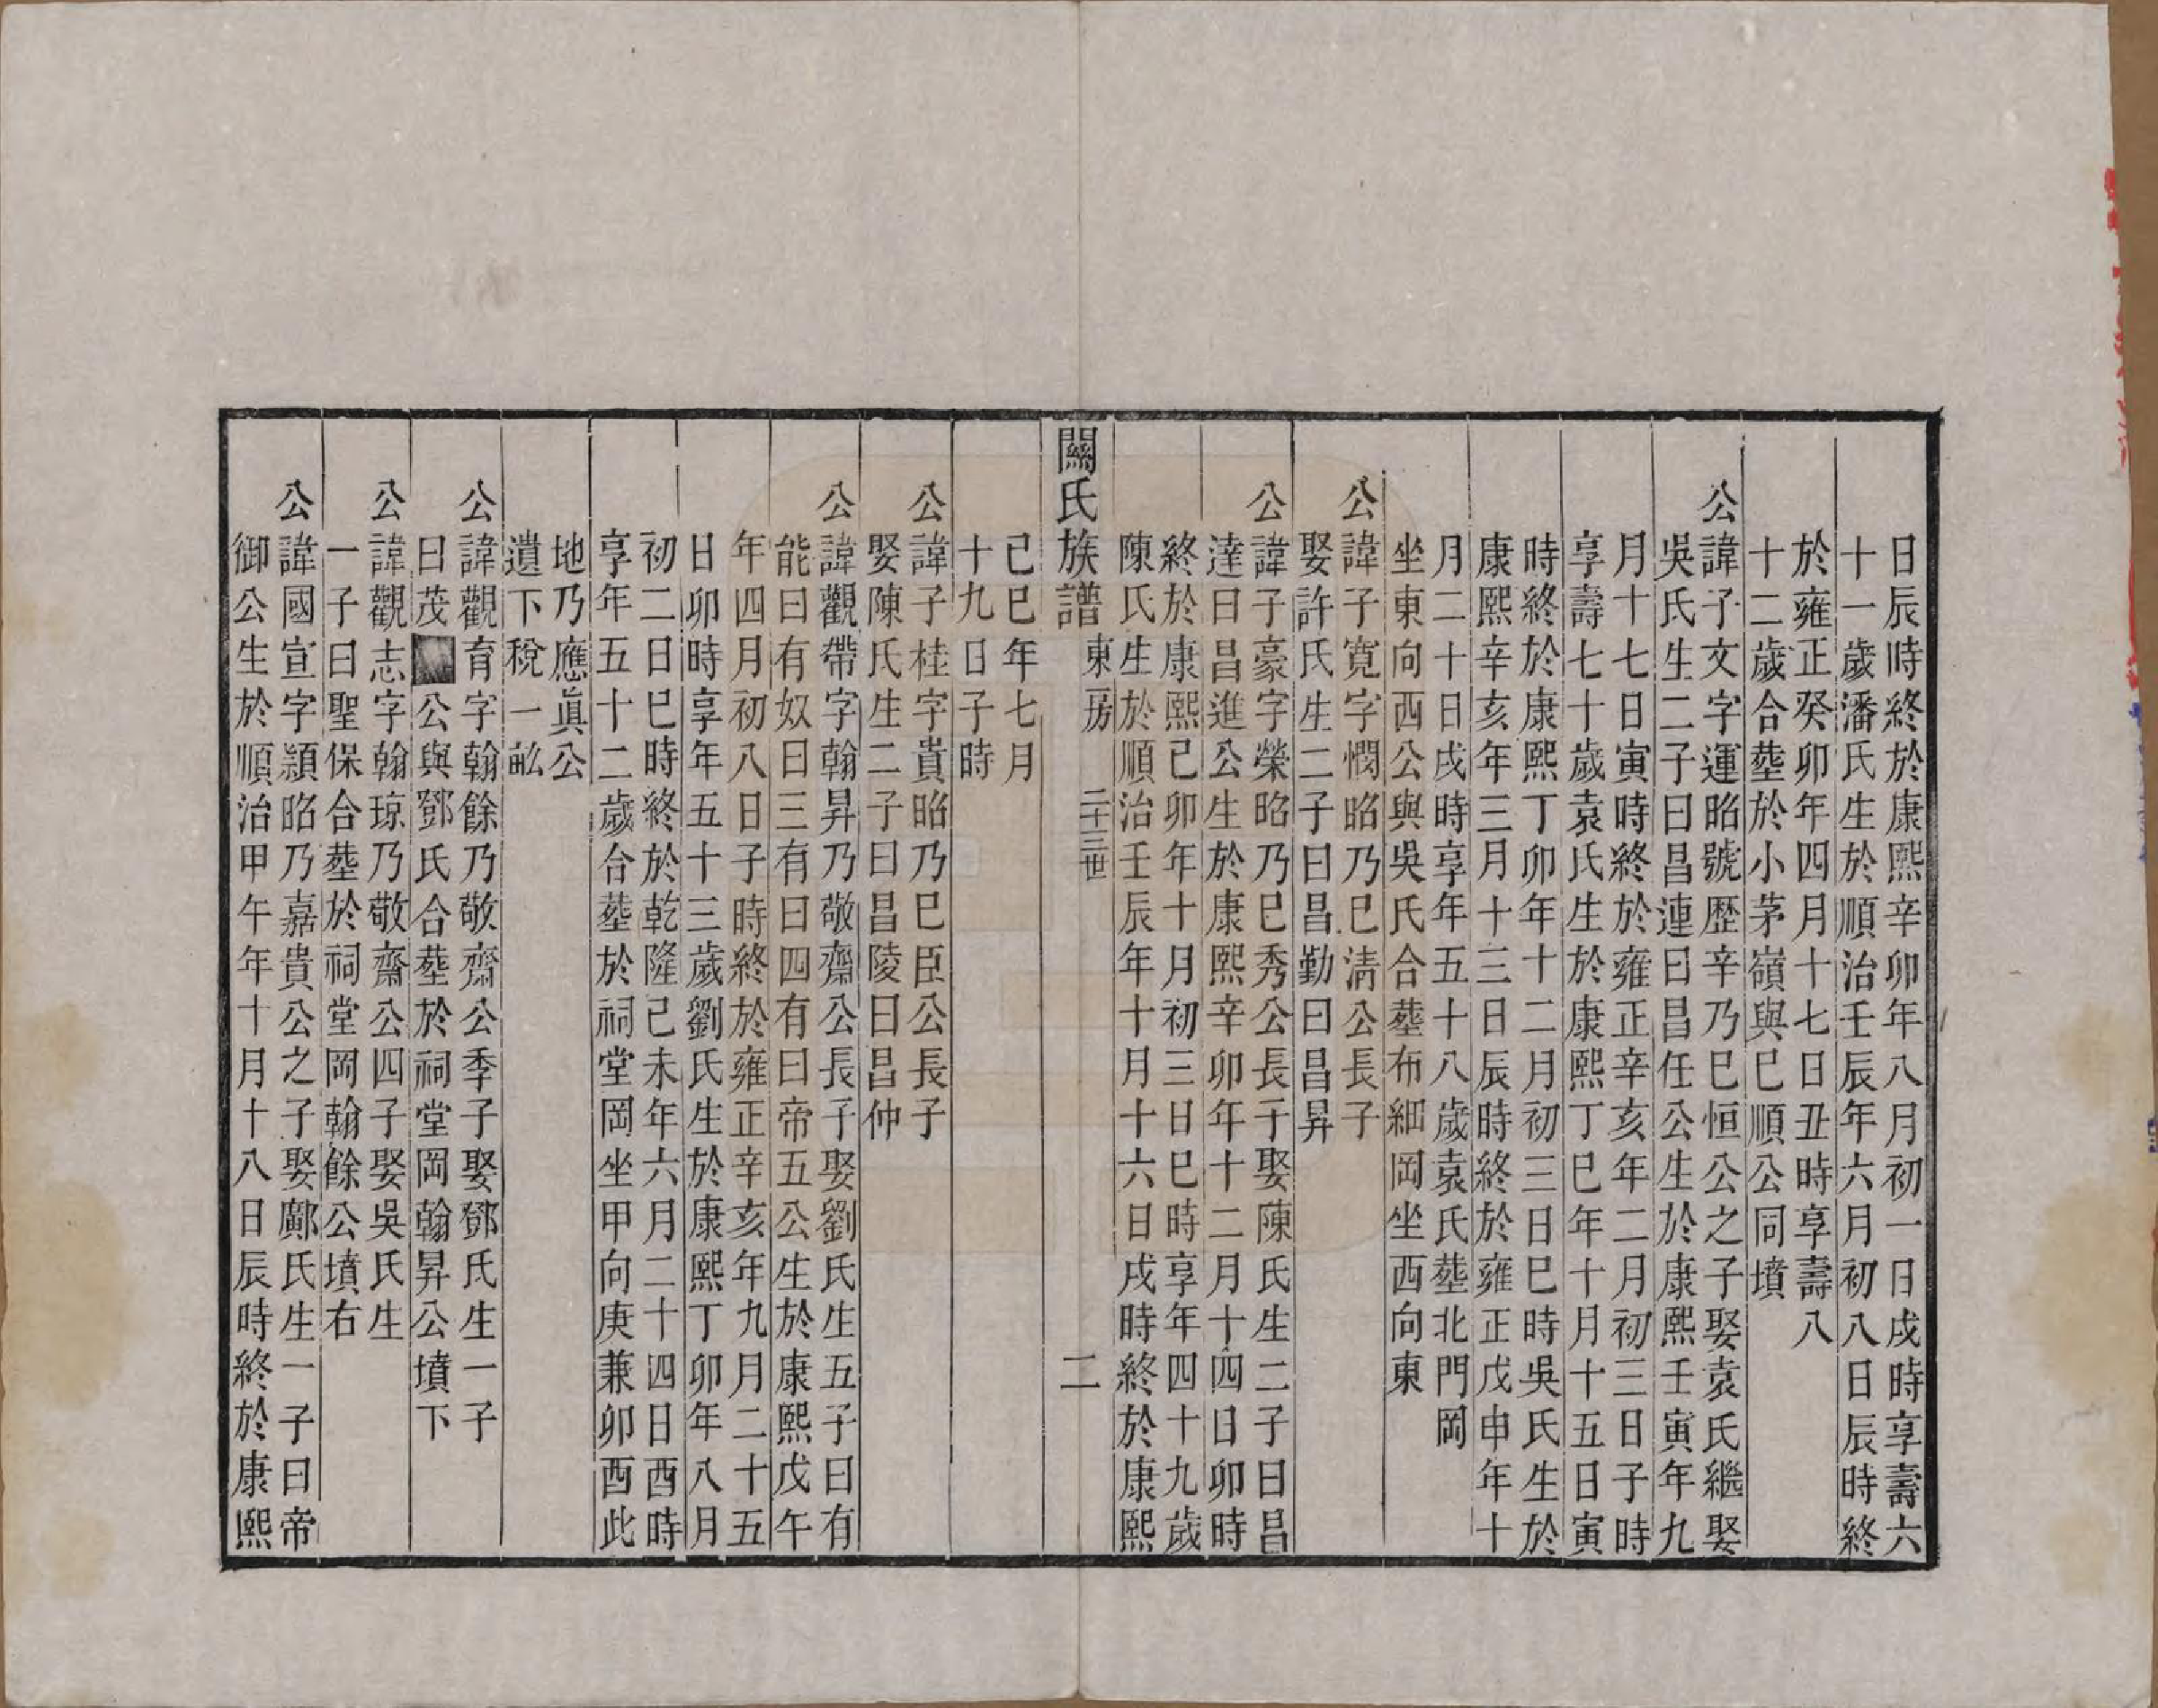 日辰時終於康熙辛卯年八月初一日戌時享壽六
十一歲潘氏生於順治壬辰年六月初八日辰時終
於雍正癸卯年四月十七日丑時享壽八
十二歲合塟於小茅嶺與巳順公同墳
公諱子文字運昭號歷辛乃巳恒公之子娶袁氏繼娶
吳氏生二子曰昌連曰昌任公生於康熙壬寅年九
月十七日寅時終於雍正辛亥年二月初三日子時
享壽七十歲袁氏生於康熙丁巳年十月十五日寅
時終於康熙丁卯年十二月初三日巳時吳氏生於
康熙辛亥年三月十三日辰時終於雍正戊申年十
月二十日戌時享年五十八歲袁氏塟北門岡
坐東向西公與吳氏合塟布細岡坐西向東
公諱子寬字憫昭乃巳清公長子
娶許氏生二子曰昌勤曰昌昇
公諱子豪字榮昭乃巳秀公長子娶陳氏生二子曰昌
達曰昌進公生於康熙辛卯年十二月十四日卯時
終於康熙己卯年十月初三日巳時享年四十九歲
陳氏生於順治壬辰年十月十六日戌時終於康熙
關氏族譜 東房 二十三世 二
己巳年七月
十九日子時
公諱子桂字貴昭乃巳臣公長子
娶陳氏生二子曰昌陵曰昌仲
公諱觀帶字翰昇乃敬齋公長子娶劉氏生五子曰有
能曰有奴曰三有曰四有曰帝五公生於康熙戊午
年四月初八日子時終於雍正辛亥年九月二十五
日卯時享年五十三歲劉氏生於康熙丁卯年八月
初二日巳時終於乾隆己未年六月二十四日酉時
享年五十二歲合塟於祠堂岡坐甲向庚兼卯酉此
地乃應眞公
遺下稅一畝
公諱觀育字翰餘乃敬齋公季子娶鄧氏生一子
曰茂公與鄧氏合塟於祠堂岡翰昇公墳下
公諱觀志字翰琼乃敬齋公四子娶吳氏生
一子曰聖保合塟於祠堂岡翰餘公墳右
公諱國宣字頴昭乃嘉貴公之子娶鄺氏生一子曰帝
御公生於順治甲午年十月十八日辰時終於康熙